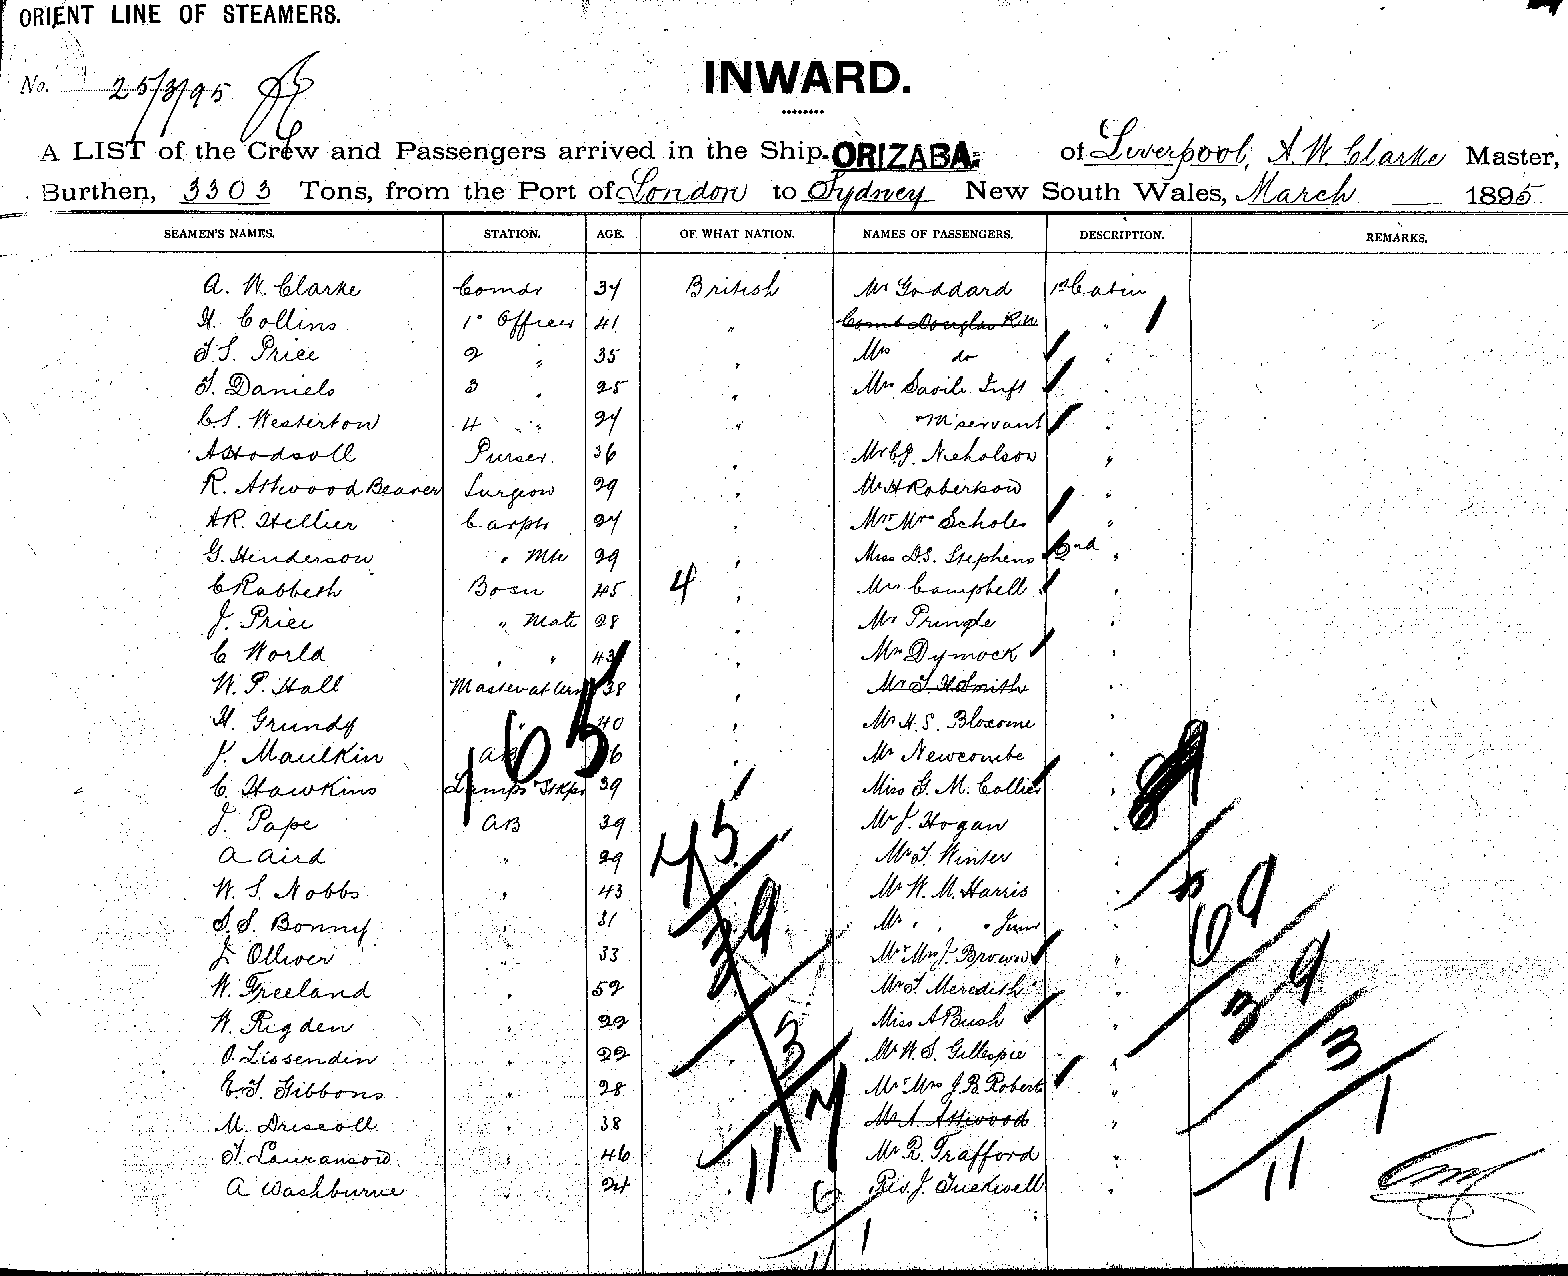 ORIENT LINE OF STEAMERS.
No. 25/3/95
INWARD.
A LIST of the Crew and Passengers arrived in the Ship ORIZABA. of Liverpool, A W Clarke Master,
Burthen, 3303 Tons, from the Port of London to Sydney New South Wales, March 1895
SEAMEN'S NAMES. STATION. AGE. OF WHAT NATION. NAMES OF PASSENGERS. DESCRIPTION. REMARKS.
A. W. Clarke Comdr 34 British Mr Goddard 1st Cabin
H. Collins 1st Officer 41 " Comd Douglas R.N "
T.S. Price 2 " 35 " Mrs do "
T. Daniels 3 " 25 " Mrs Savile Inft "
C.S. Westerton 4 " 24 " " M servant "
A Hodsoll Purser 36 " Mr C.J. Nicholson "
R. Attwood Beaver Surgeon 29 " Mr H Robertson "
A.R. Hellier Carptr 24 " Mr Mrs Scholes "
G. Henderson " Mte 29 " Miss D.S. Stephens 2nd "
C Rabbeth Bosn 45 4 " Mrs Campbell "
J. Price " Mate 28 " Mr Pringle "
C World " " 43 " Mrs Dymock "
W. P. Hall Master at Arms 38 " Mr T H Smith "
H. Grundy " 40 " Mr H. S. Bloxome "
J. Maulkin AB 6 " Mr Newcombe "
C. Hawkins Lamps 39 Miss G. M. Collier
J. Pape AB 39 Mr J. Hogan "
A Aird " 29 Mr T. Winter
W. S. Nobbs " 43 Mr W. M. Harris "
S.S. Bonny " 31 Mr " " Junr "
J. Olliver " 33 Mr Mrs J. Brown "
W. Freeland " 52 Mr T. Meredith "
W. Rigden " 22 Miss A Bush "
O. Lissenden " 22 Mr W. S. Gillespie "
E.T. Gibbons " 28 Mr Mrs J B Roberts "
M. Driscoll " 38 Mr A Attwood "
T. Lauranson " 46 Mr R. Trafford "
A Washburne " 24 Rev J. Tuckwell "
165
45
39
3
11
69
39
3
1
11